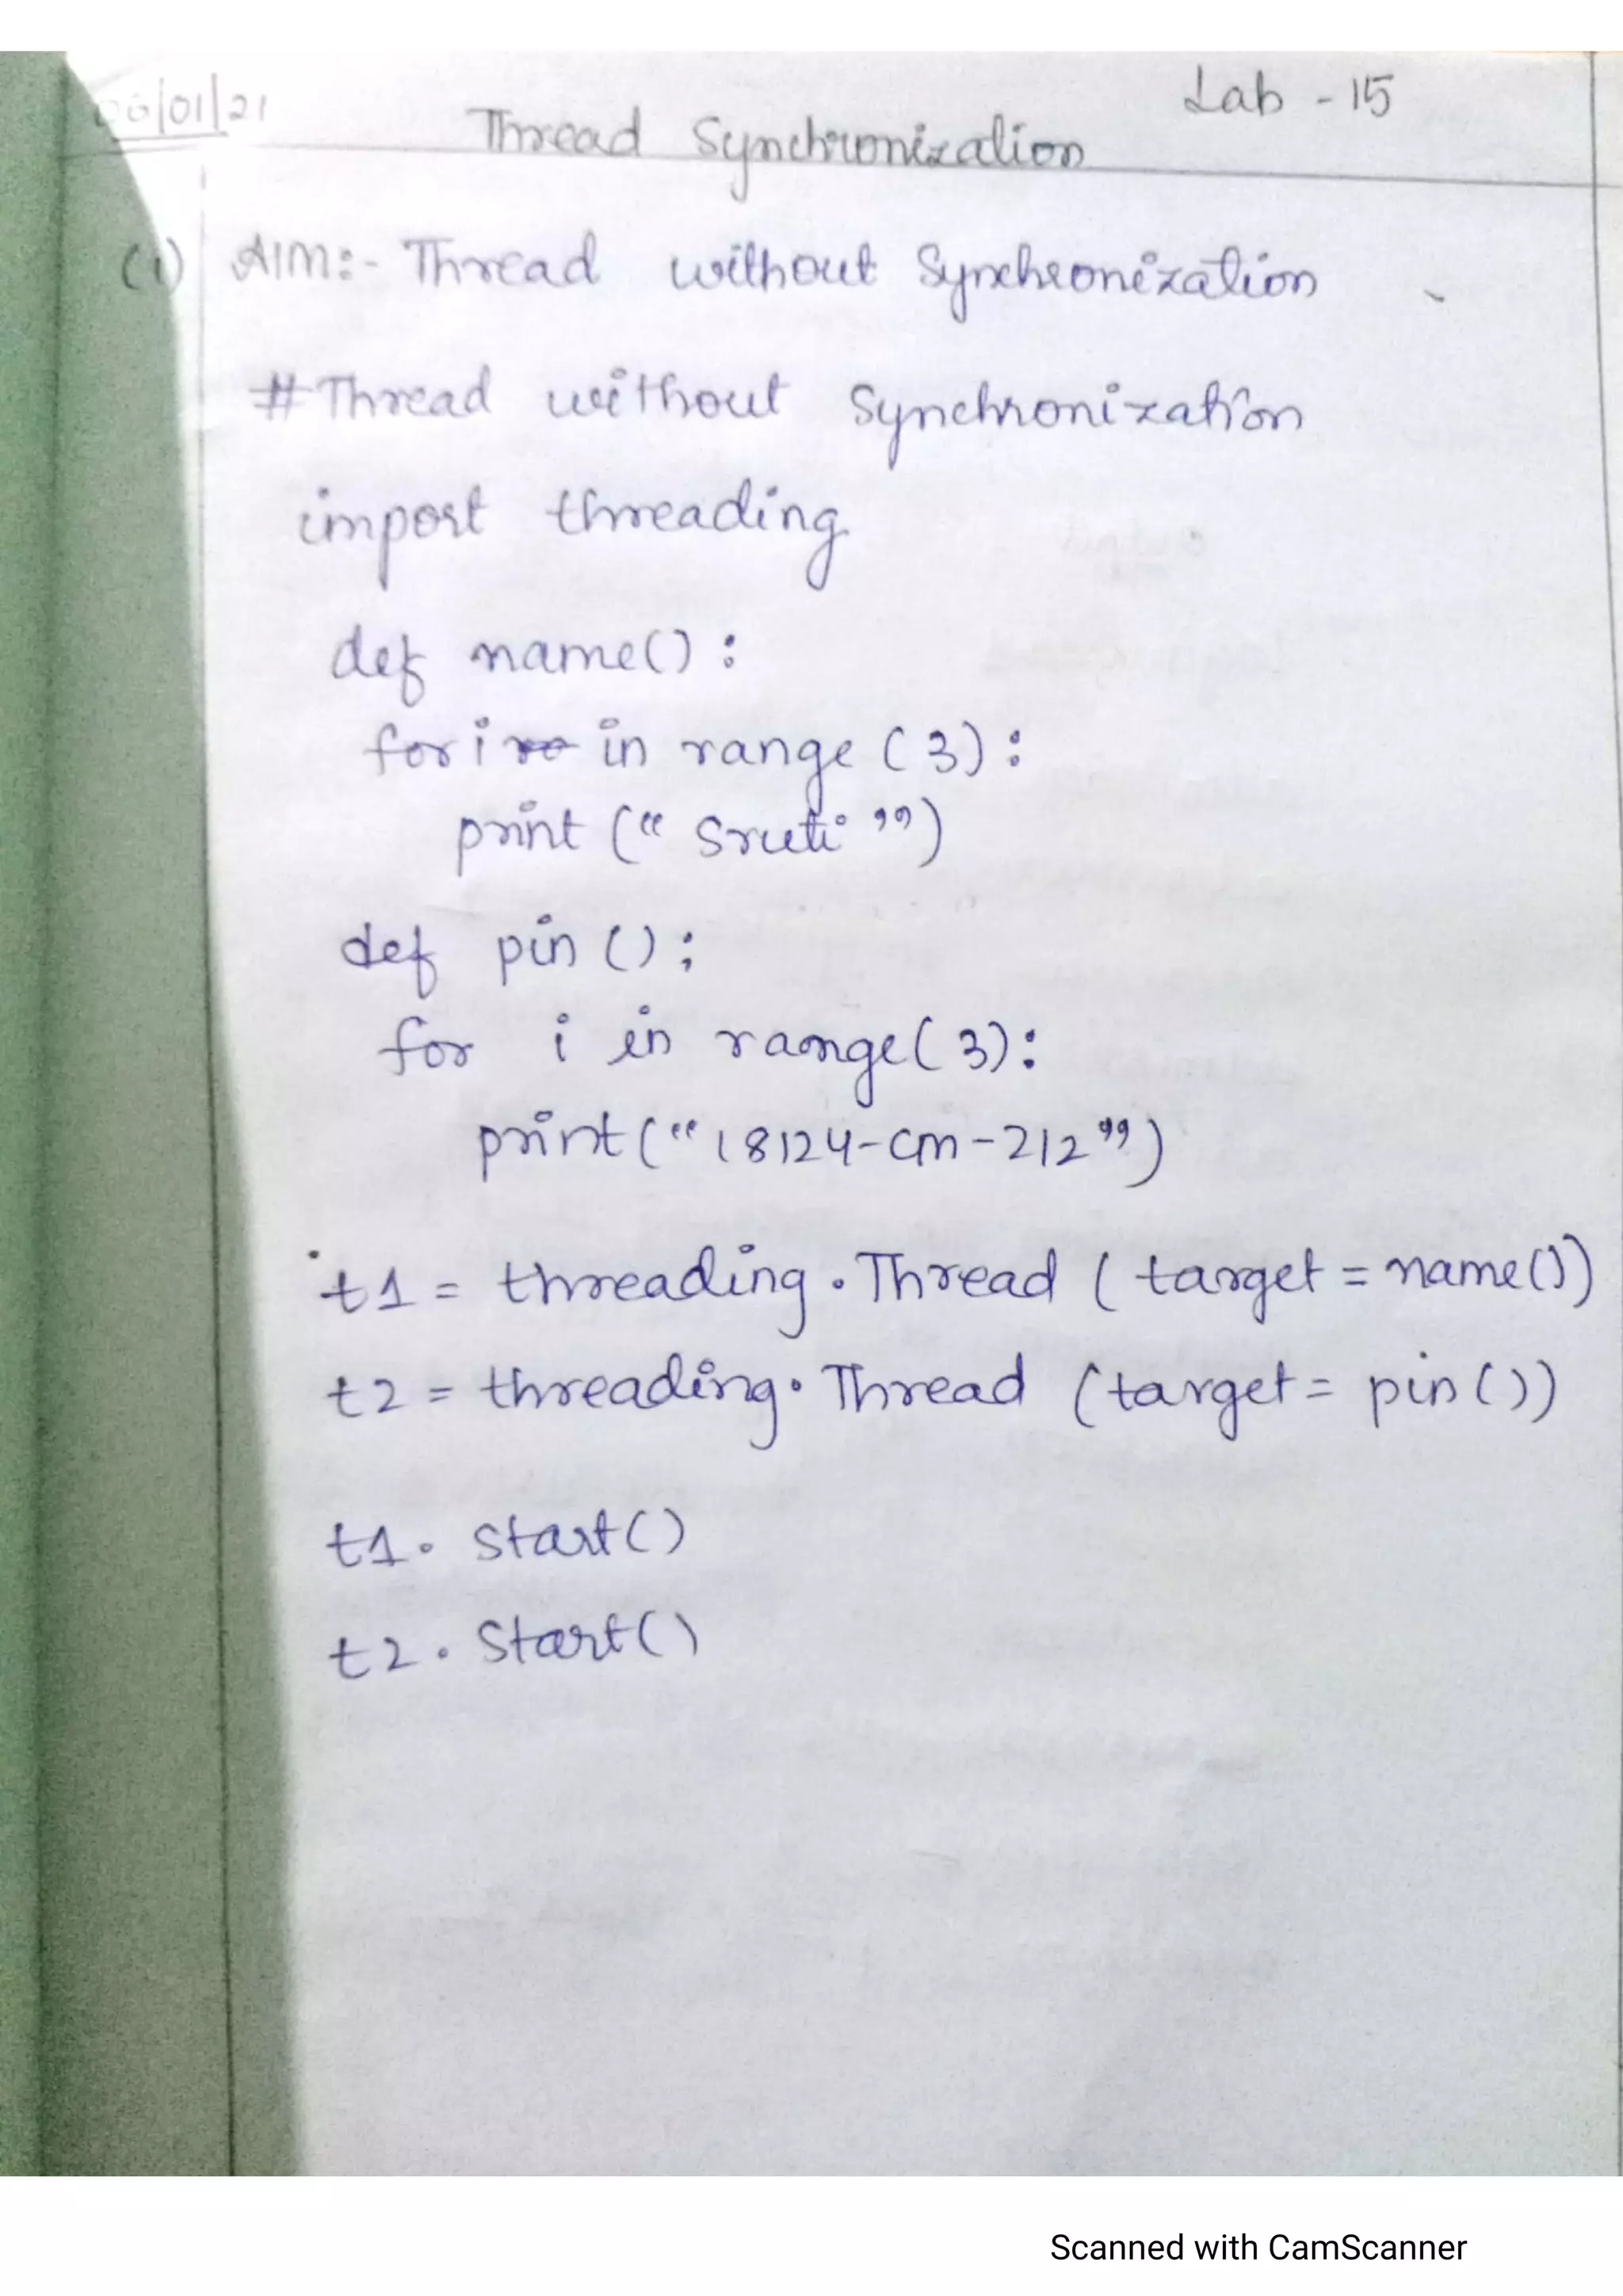 06/01/21
Lab - 15
Thread Synchronization
(i) AIM:- Thread without Synchronization
# Thread without Synchronization
import threading
def name():
for i in range (3):
print (" Sruti ")
def pin ():
for i in range(3):
print("18124-cm-212")
t1 = threading.Thread (target = name())
t2 = threading.Thread (target = pin())
t1. start()
t2. start()
Scanned with CamScanner